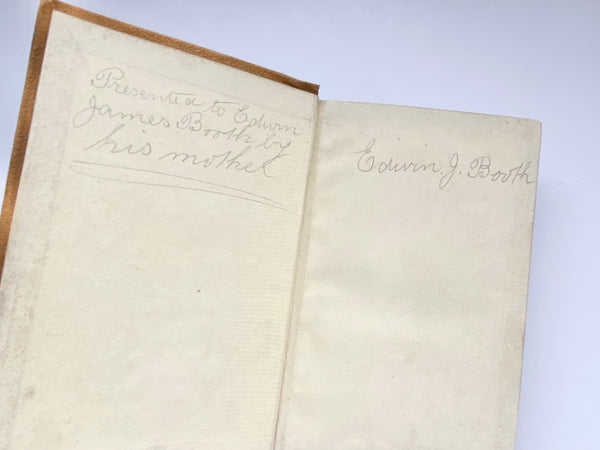 Presented to Edwin
James Booth by
his mother
Edwin. J. Booth